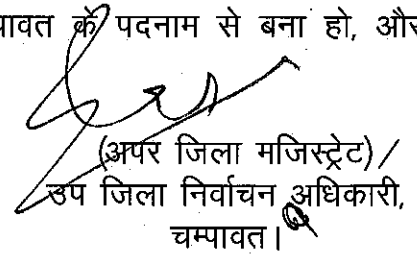 पावत के पदनाम से बना हो, और
(अपर जिला मजिस्ट्रेट) /
उप जिला निर्वाचन अधिकारी,
चम्पावत।